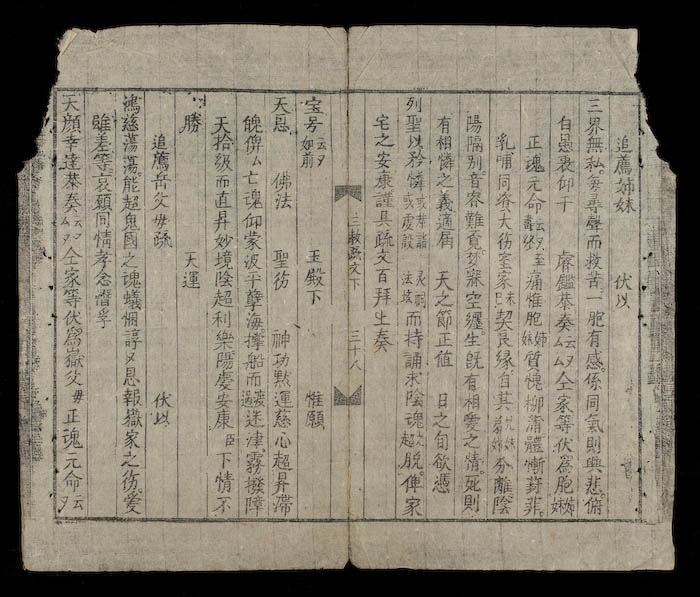 追薦姉妹 伏以
三界無私。每尋聲而救苦一胞有感。係同氣則興悲。俯
白愚衷仰干 睿鑑恭奏云云仝家等伏爲胞姉妹
正魂元命云云 至痛惟胞姉妹質愧柳蒲體慚葑菲。
乳哺同 大 室家 契良緣。自其 分離陰
陽隔别音容難覓。夢寐空纏。生既有相愛之情。死則
有相憐之義適屆 天之節正值 日之旬欲憑
列聖以矜憐或孝詣或虔設 灵祠法坡而持誦求陰魂 超脫。俾家
宅之安康謹具疏文百拜上奏
三教疏文下 三十八
宝号云云如前 王殿下 惟願
天恩 佛法 聖 神功默運慈心超昇滯
魄俾 亡魂仰蒙波平孽海撐船而 迷津。霧撥障
天拾級而直昇妙境陰超利樂陽慶安康臣下情不
勝 天運
追薦岳父母疏 伏以
鴻慈蕩蕩。能超鬼國之魂蟻悃諄諄恩報嶽家之 愛
雖差等哀願同情孝念潛孚
天顔幸達恭奏云云 仝家等伏爲嶽父母 正魂元命云云